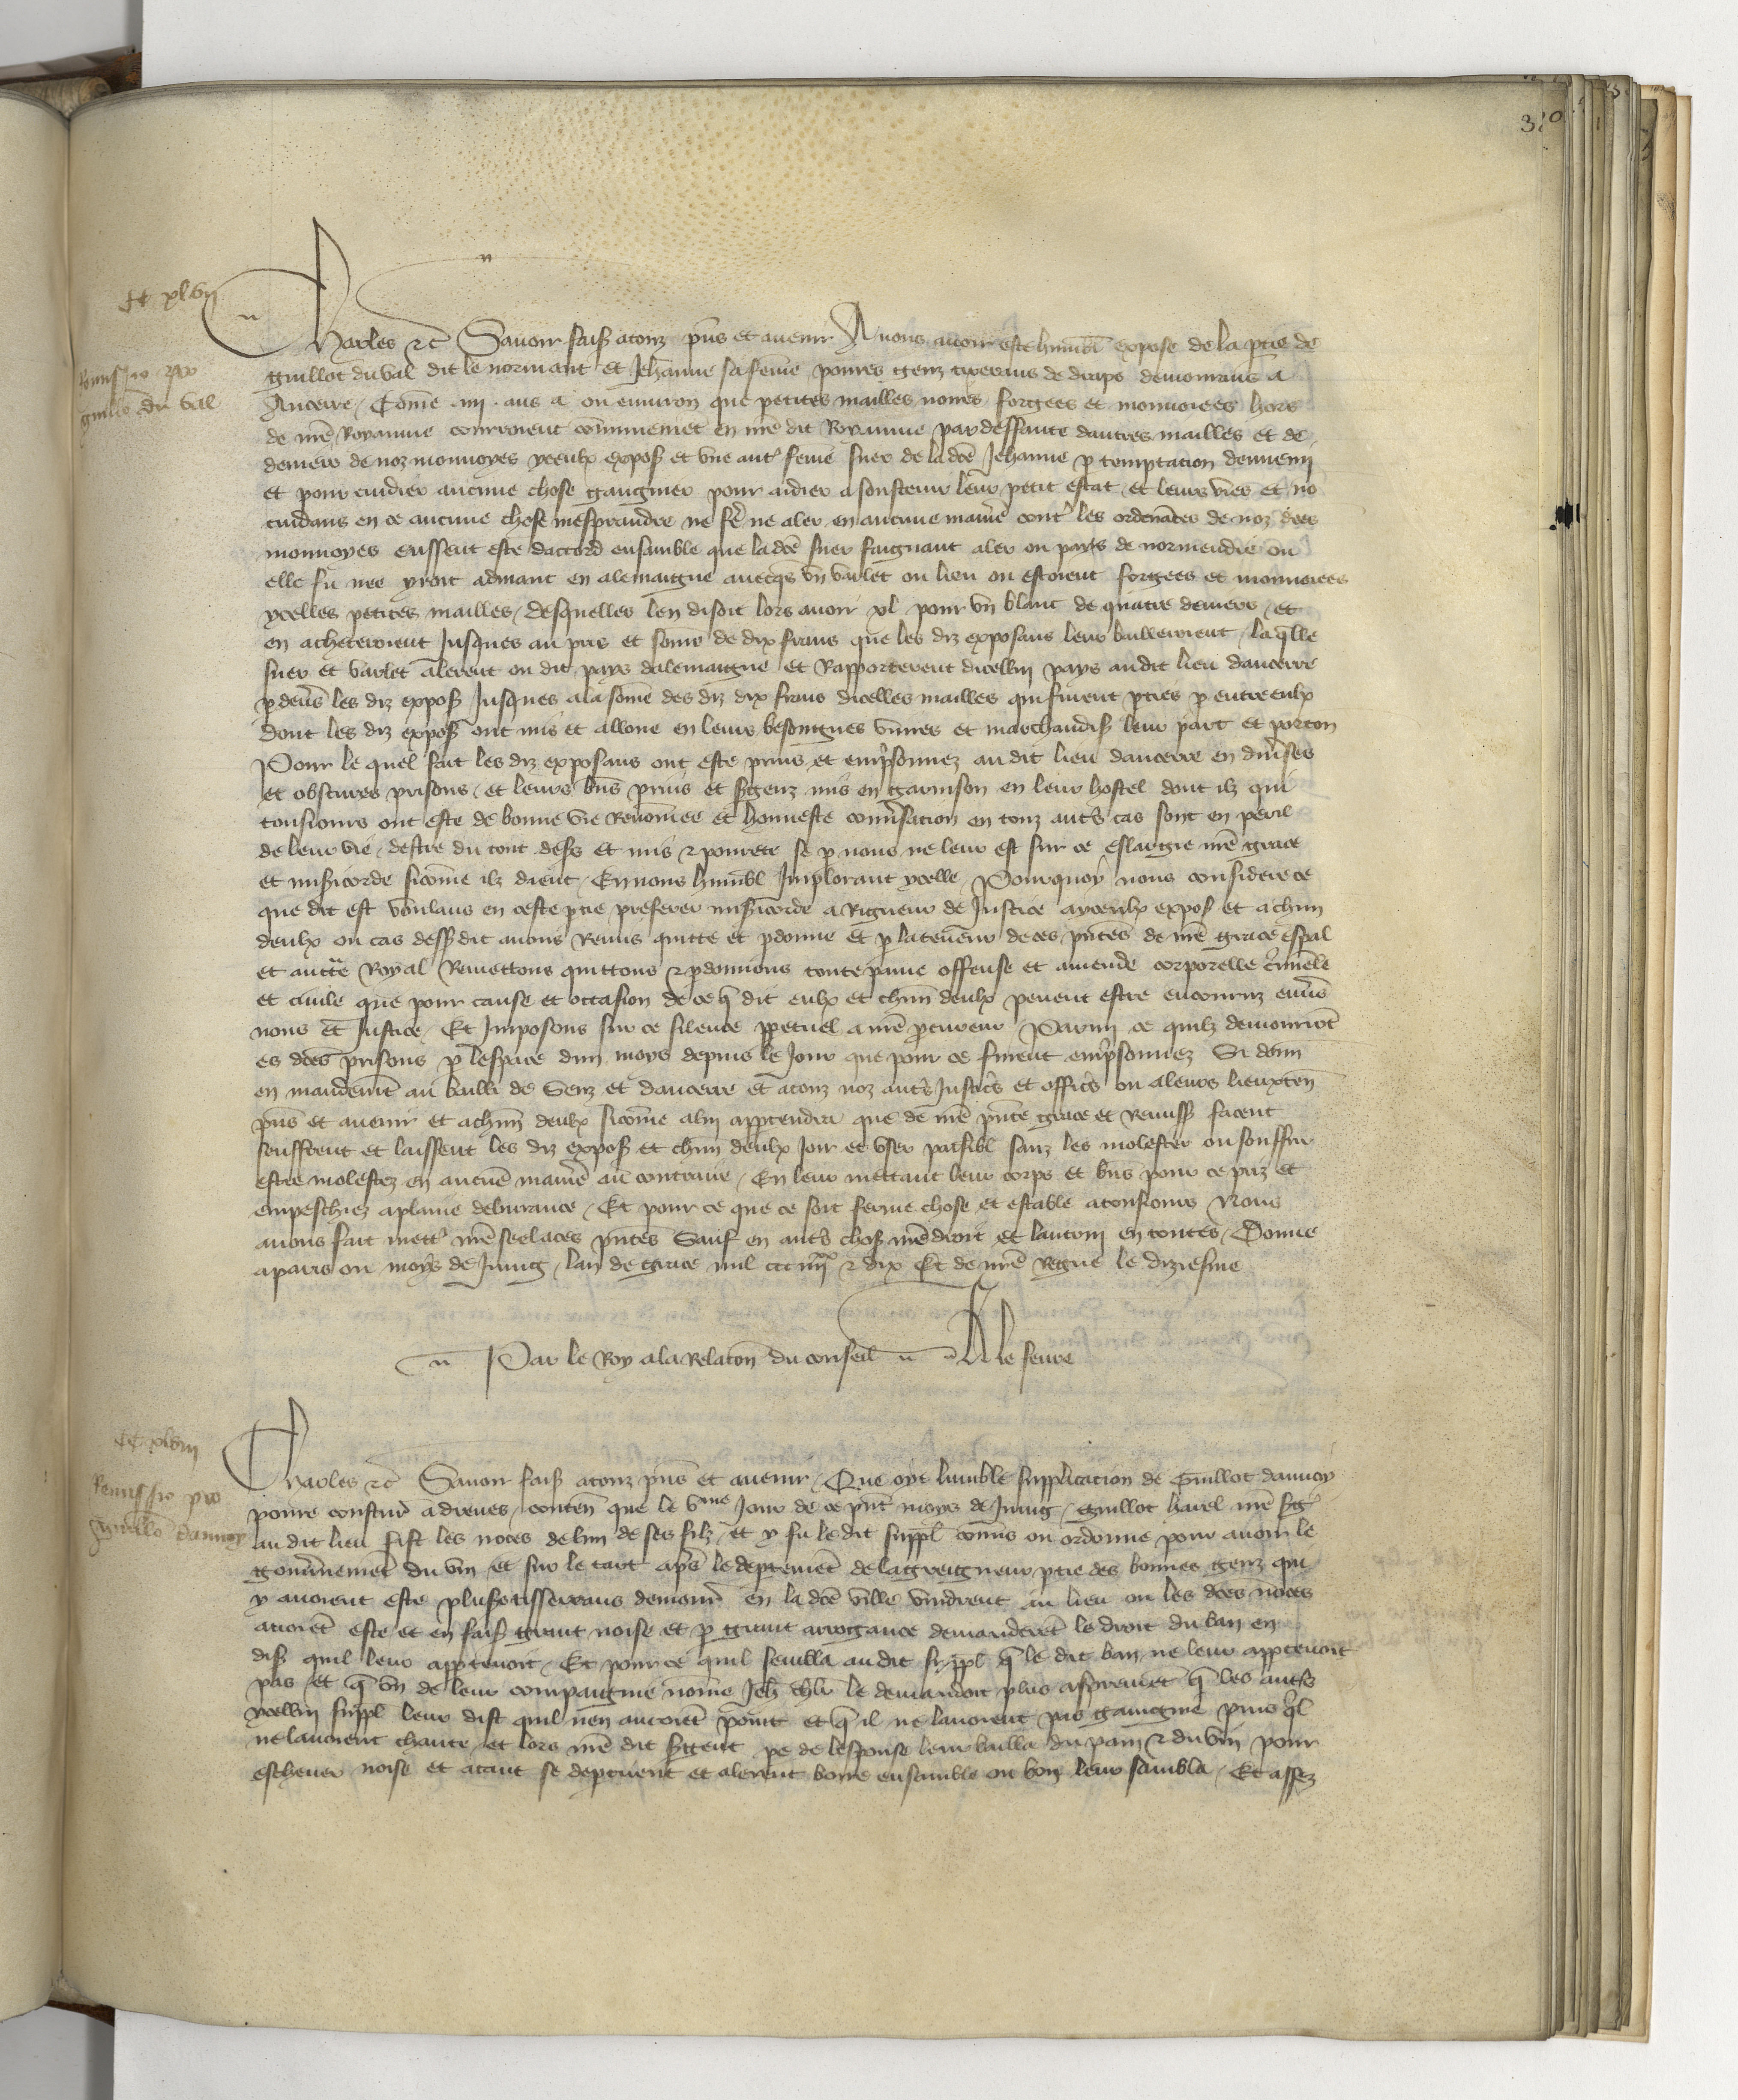 CC xlvii
Remissio pro
guillo du val
Charles etc Savoir fais atouz pns et avenir A nous avoir este humbl expose de la ptie de
guillot du val dit le normant et Jehanne sa feme povres genz tixerans de draps demourans a
Aucerre / Come iiij ans a ou environ que petites mailles noires forgees et monnoiees hors
de nre Royaume couroient communemet en nre dit Royaume par deffaute dautres mailles et de
deniers de noz monnoyes yceulx expos et une autre feme suer de la dce Jehanne p temptacion dennemi
et pour cuidier aucune chose gaingnier pour aidier a soustenir leur petit estat et leurs vies et no
cuidans en ce aucune chose mesprandre ne fe ne aler en aucune maniere cont les ordenaces de noz dces
monnoyes eussent este daccord ensamble que la dce suer faignant aler ou pays de normendie ou
elle fu nee yroit adinant en alemaigne avecqs un varlet ou lieu ou estoient forgees et monnoiees
ycelles petites mailles / desquelles len disoit lors avoir xl pour un blanc de quatre deniers / et
en acheteroient Jusques au pris et some de dix frans que les diz exposans leur bailleroient / la qlle
suer et varlet alerent ou dit pays dalemaigne et Rapporterent dicellui pays audit lieu daucerre
p devs les diz expos Jusques ala some des diz dix frans dicelles mailles qui furent pties p entre eulx
Dont les diz expos ont mis et alloue en leurs besoingnes vivres et marchandis leur part et porcon
Pour le quel fait les diz exposans ont este prins et emprisonnez au dit lieu daucerre en diverses
et obscures prisons / et leurs bns prins et sergenz mis en garnison en leur hostel dont ilz qui
tousiours ont este de bonne vie Renomee et honneste conversacion en touz autres cas sont en peril
de leur vie / destre du tout desers et mis a povrete se p nous ne leur est sur ce eslargie nre grace
et misericorde sicome ilz dient / En nous humbl Implorant ycelle / Pourquoy nous considere ce
que dit est voulans en ceste ptie preferer misericorde a Rigueur de Justice a yceulx expos et a chun
deulx ou cas dessusdit avons Remis quitte et pdonne et p la teneur de ces pntes de nre grace espal
et auctte Royal Remettons quittons et pdonnons toute paine offense et amende corporelle criminele
et civile que pour cause et occasion de ce q dit eulx et chun deulx pevent estre encouruz envers
nous et Justice / Et Imposons sur ce silence ppetuel a nre procureur Parmi ce quilz demourront
es dces prisons p lespace dun moys depuis le Jour que pour ce furent emprisonnez Si donn
en mandement au bailli de Senz et daucerre et atouz noz autres Justiciers et officiers ou aleurs lieuxten
pns et avenir et a chun deulx sicome alui apptendra que de nre pnte grace et Remiss facent
seuffrent et laissent les diz expos et chun deulx Joir et user paisibl sanz les molester ou souffrir
estre molestez en aucune maniere au contraire / En leur mettant leur corps et bns pour ce priz et
empeschiez aplaine delivrance / Et pour ce que ce soit ferme chose et estable atousiours Nous
avons fait mettre nre seel aces pntes Sauf en autres chos nre droit et lautrui en toutes / Donne
aparis ou moys de Juing / lan de grace mil ccc iiijxx et dix Et de nre Regne le diziesme
Par le Roy ala Relacon du conseil A le fevre
CC xlviii
Remissio pro
Guillo daunoy
Charles etc Savoir fais atouz pns et avenir / Que oye lumble supplicacion de Guillot daunoy
povre coustur a dreues / conten que le vme Jour de ce pnt moys de Juing / Guillot havel nre serg
au dit lieu fist les noces de lun de ses filz / et y fu le dit suppl comis ou ordonne pour avoir le
gouvernement du vin et sur le tart aps le deptement de la greigneur ptie des bonnes genz qui
y avoient este pluss tisserrans demour en la dce ville vindrent au lieu ou les dces noces
avoiet este et en fais grant noise et p grant arrogance demanderet le droit du ban en
dis quil leur apptenoit / Et pour ce quil sembla audit suppl q le dit ban ne leur apptenoit
pas / et q un de leur compaignie nome Jeh chlr le demandoit plus asprement q les autres
ycellui suppl leur dist quil nen auroiet point et q il ne lavoient pas gaingne pmis qil
ne lavoient chante / et lors nre dit sergent pe de lespouse leur bailla du pain et du vin pour
eschever noise et atant se deptirent et alerent boire ensamble ou bon leur sambla / Et assez